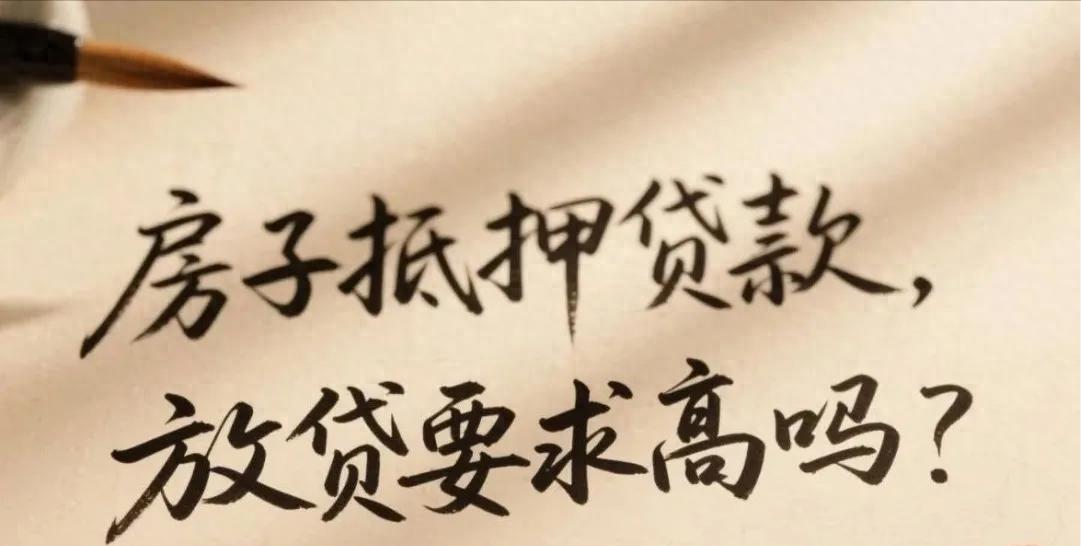 房子抵押贷款，
放贷要求高吗？